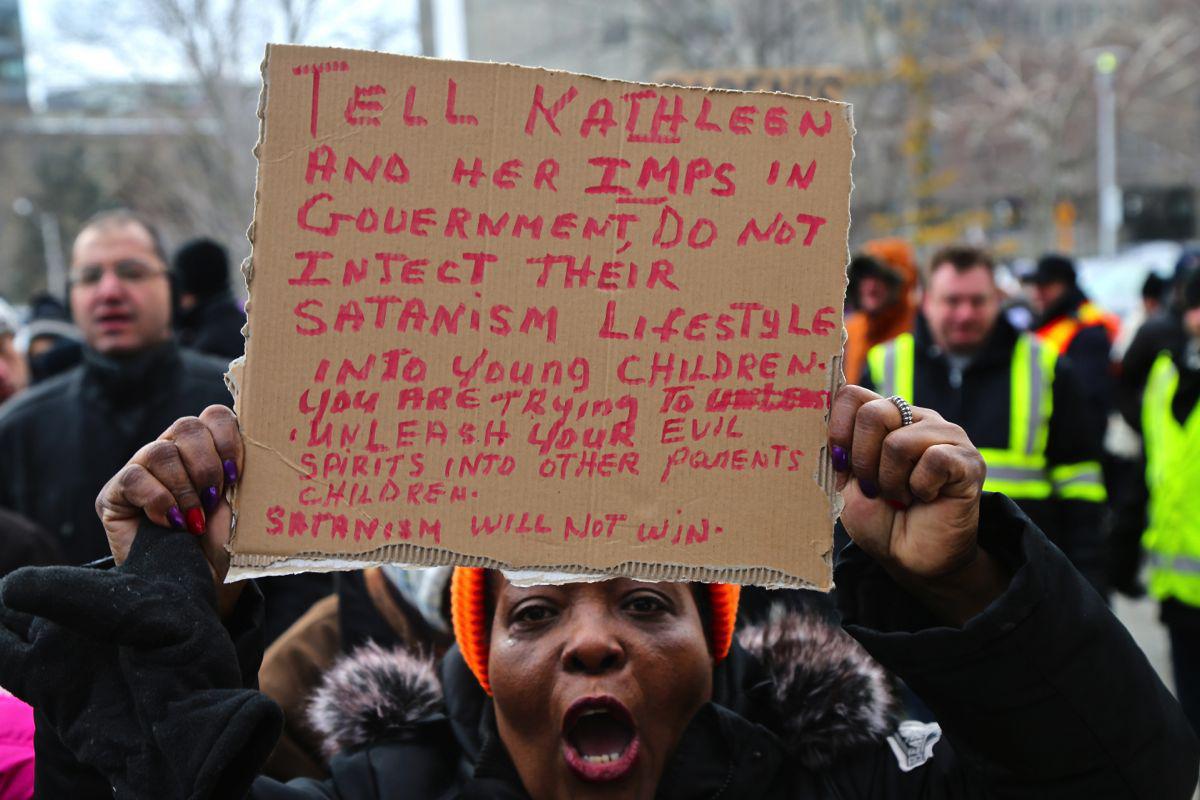 TELL KATHLEEN
AND HER IMPS IN
GOUERNMENT, DO NOT
INJECT THEIR
SATANiSM LifESTYLE
INTO young CHILDREN.
you ARE TRying To
UNLEASH youR EVIL
SPIRITS INTO OTHER paRENTS
CHILDREN.
SATANISM WILL NOT WIN.